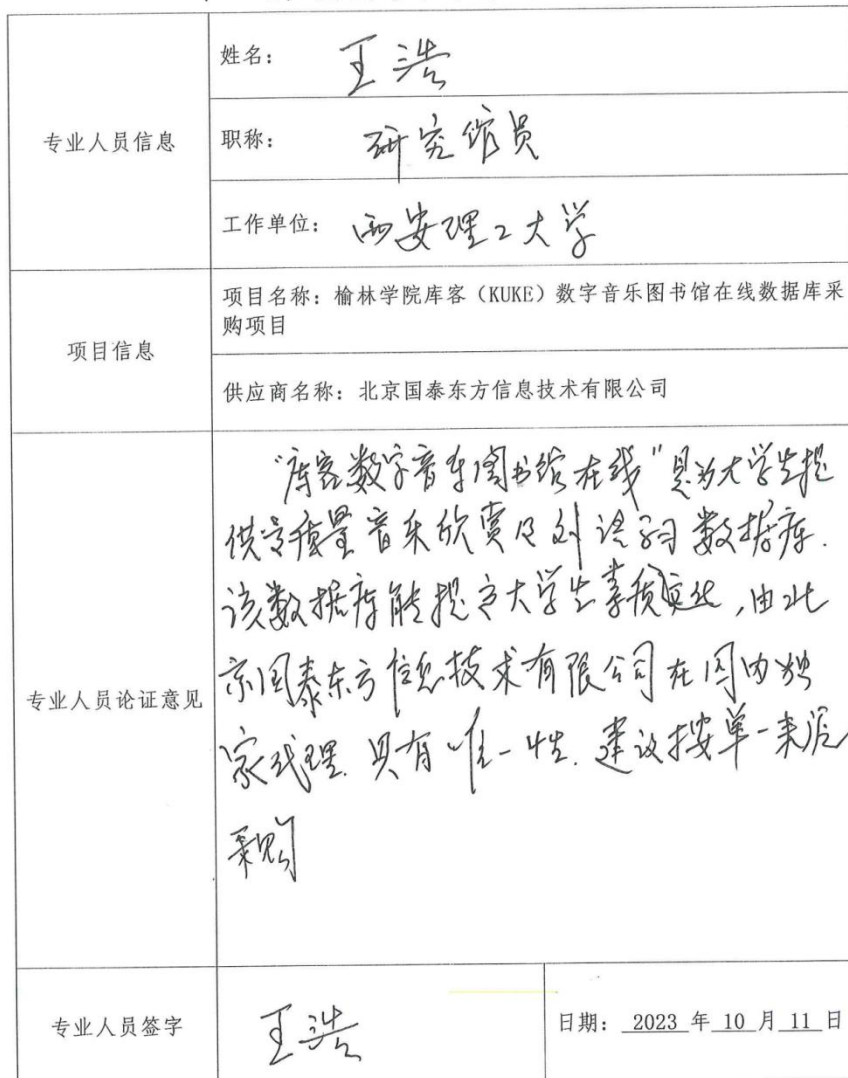 专业人员信息
姓名：王浩
职称：研究馆员
工作单位：西安理工大学
项目信息
项目名称：榆林学院库客（KUKE）数字音乐图书馆在线数据库采
购项目
供应商名称：北京国泰东方信息技术有限公司
专业人员论证意见
“库客数字音乐图书馆在线”是为大学生提
供高质量音乐欣赏及 数据库.
该数据库能提高大学生素质 ,由北
京国泰东方信息技术有限公司在国内独
家代理.具有唯一性.建议按单一来源
采购
专业人员签字
王浩
日期：2023 年 10 月 11 日